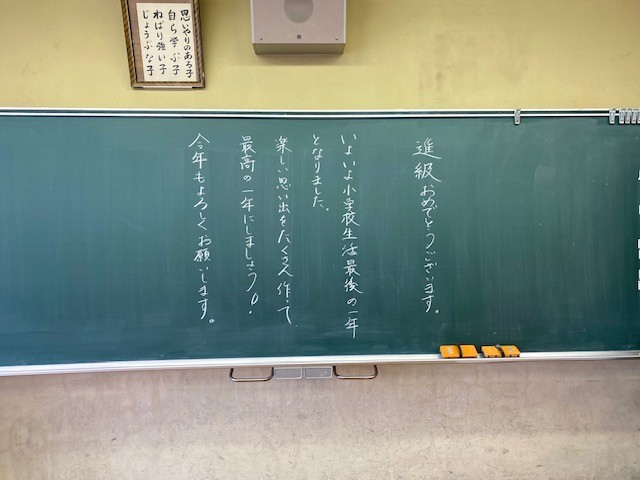 思いやりのある子
自ら学ぶ子
ねばり強い子
じょうぶな子
進級おめでとうございます。
いよいよ小学校生活最後の一年
となりました。
楽しい思い出をたくさん作って
最高の一年にしましょう!
今年もよろしくお願いします。